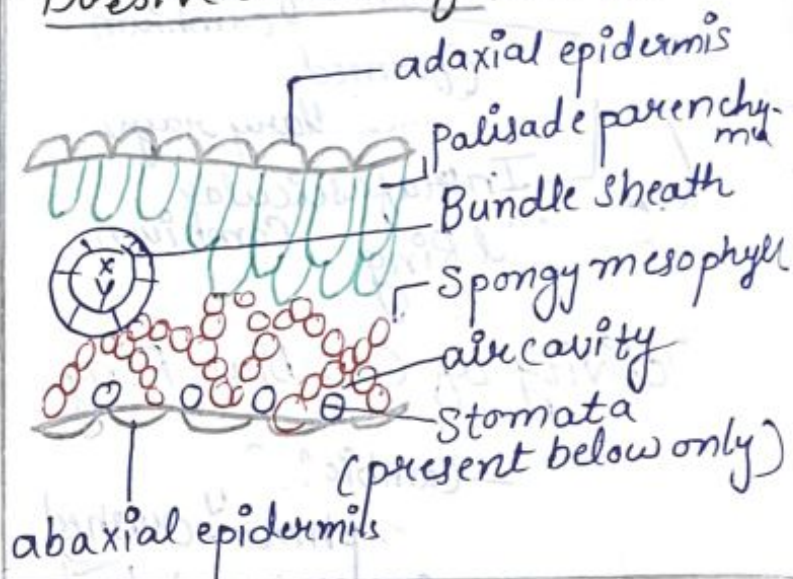 adaxial epidermis
Palisade parenchy-
ma
Bundle sheath
Spongy mesophyll
air cavity
Stomata
(present below only)
abaxial epidermis
X
Y